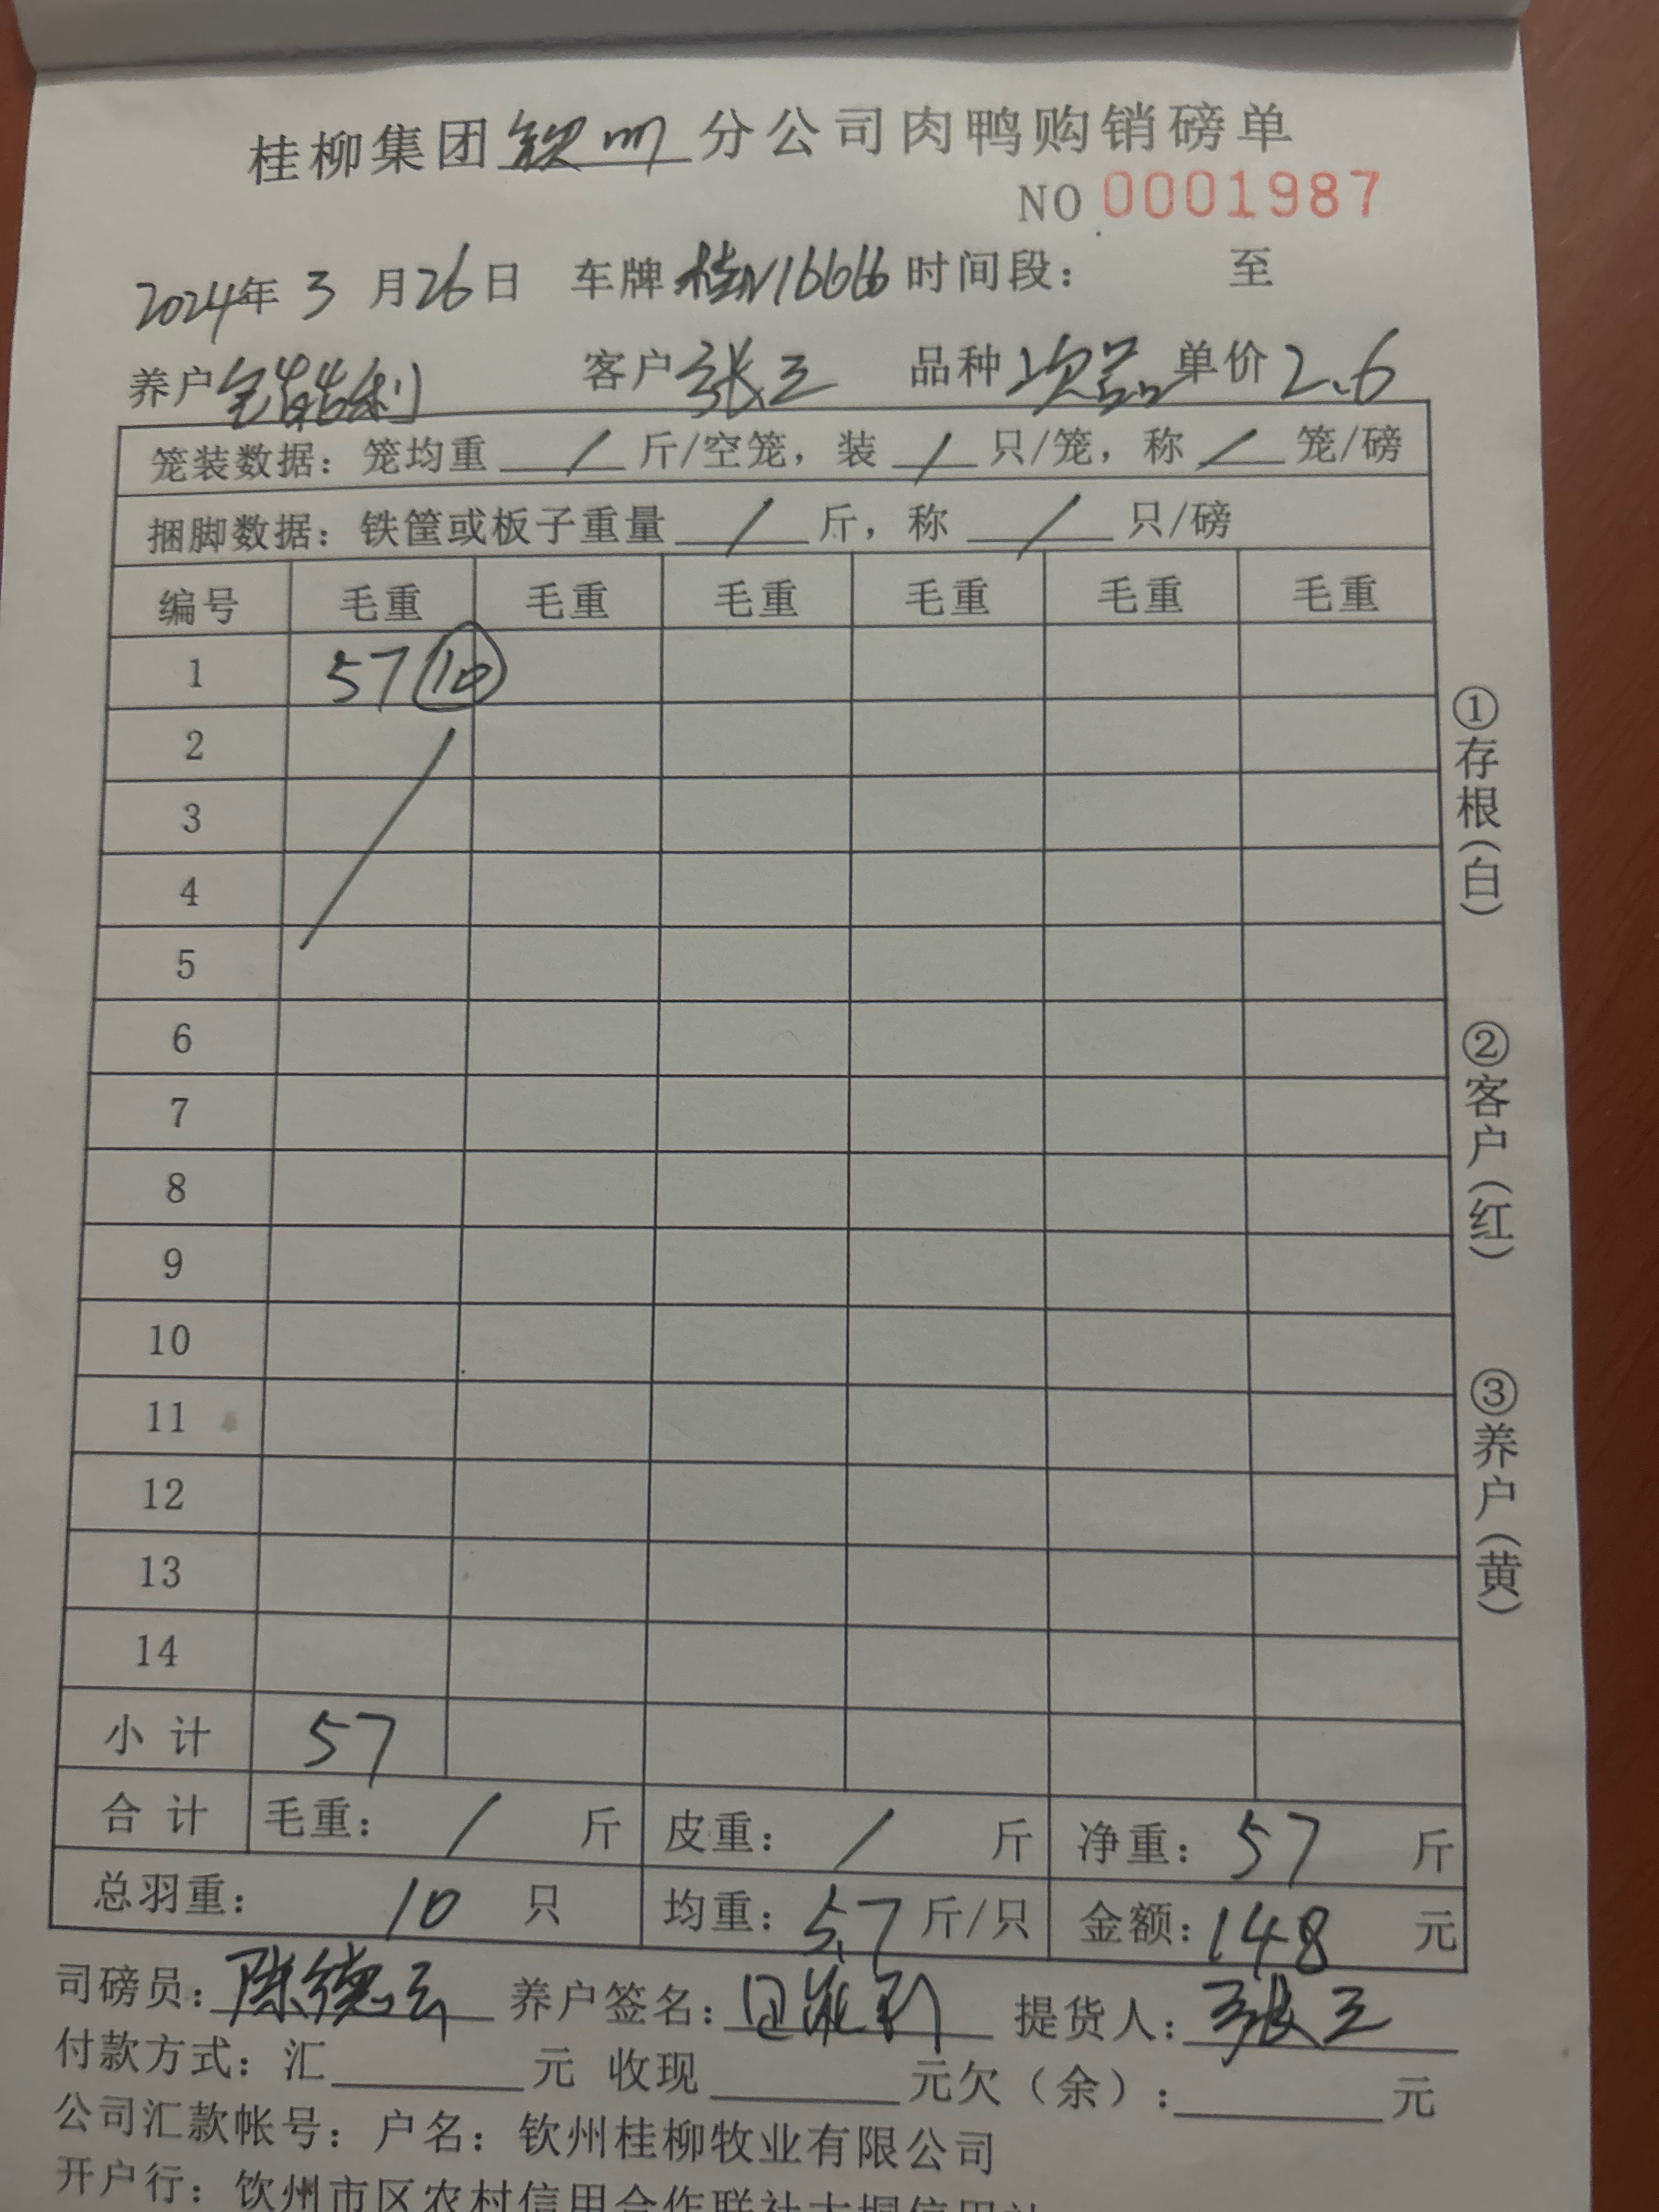 桂柳集团钦州分公司肉鸭购销磅单
NO 0001987
2024年 3 月26日 车牌 桂N16666 时间段： 至
养户 客户 张三 品种 次品 单价 2.6
笼装数据：笼均重 / 斤/空笼，装 / 只/笼，称 / 笼/磅
捆脚数据：铁筐或板子重量 / 斤，称 / 只/磅
编号 毛重 毛重 毛重 毛重 毛重 毛重
1 57 10
2
3
4
5
6
7
8
9
10
11
12
13
14
小 计 57
合 计 毛重： / 斤 皮重： / 斤 净重：57 斤
总羽重： 10 只 均重：5.7斤/只 金额：148 元
司磅员：陈德云 养户签名： 提货人：张三
付款方式：汇 元 收现 元欠（余）： 元
公司汇款帐号：户名：钦州桂柳牧业有限公司
开户行：钦州市区农村信用合作联社大垌信用社
①存根（白）
②客户（红）
③养户（黄）